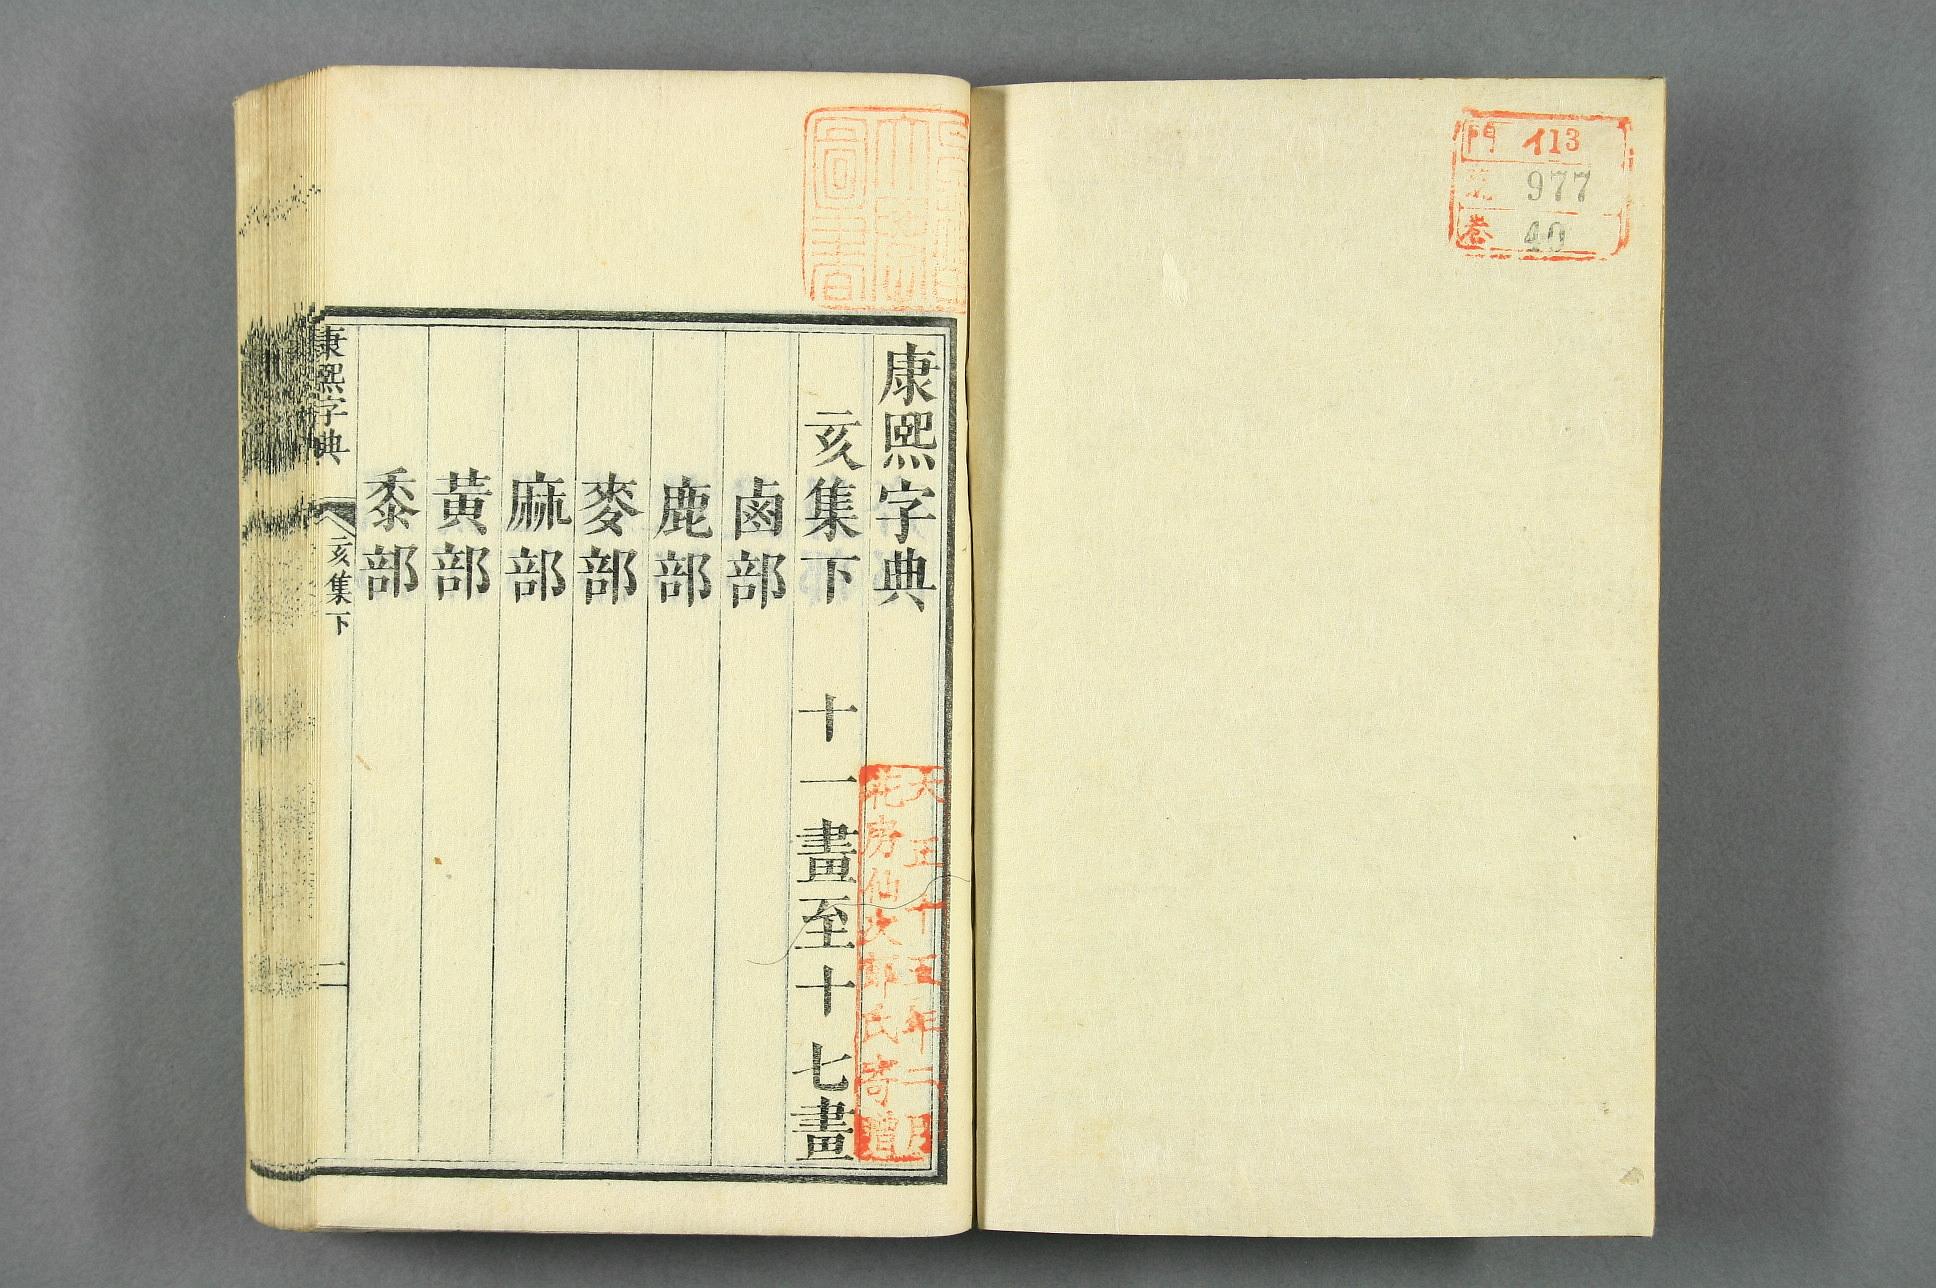 門 イ13
號 977
巻 40
康熙字典
亥集下 十一畫至十七畫
鹵部
鹿部
麥部
麻部
黃部
黍部
康熙字典 亥集下 一
大正十五年二月
花房仙次郎氏寄贈
圖書